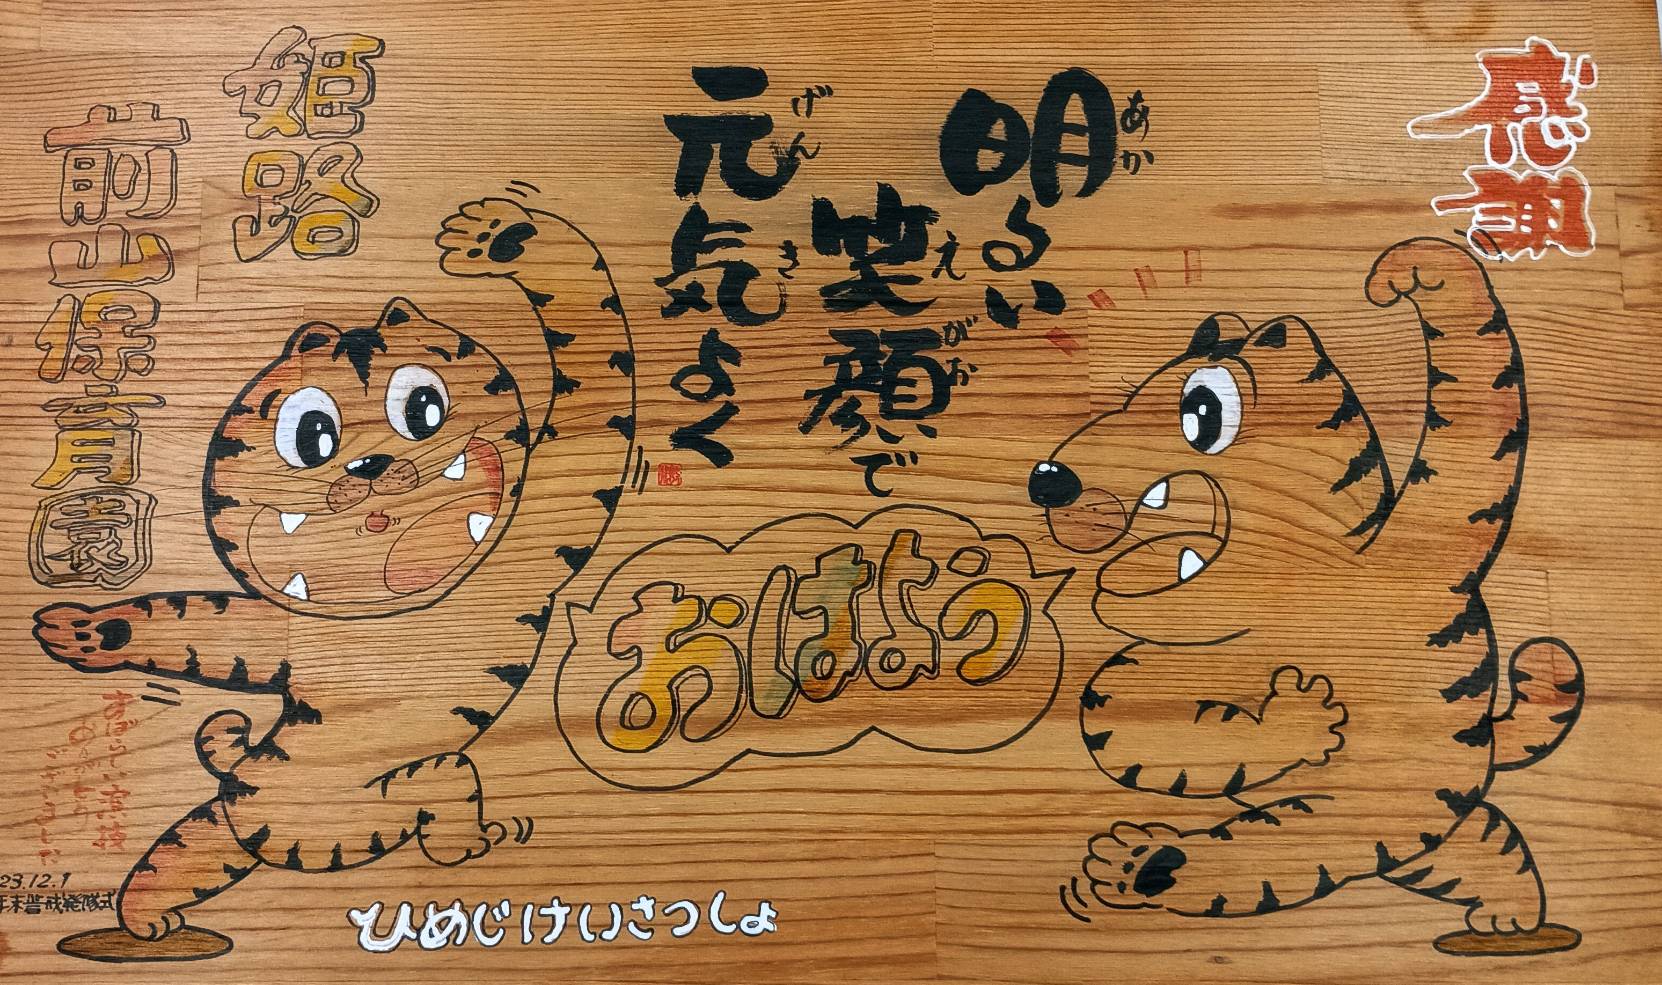 感謝
明るい
あか
笑顔で
えがお
元気よく
げんき
おはよう
姫路
前山保育園
すばらしい演技
ありがとう
ございました
23.12.1
年末警戒発隊式
ひめじけいさつしょ